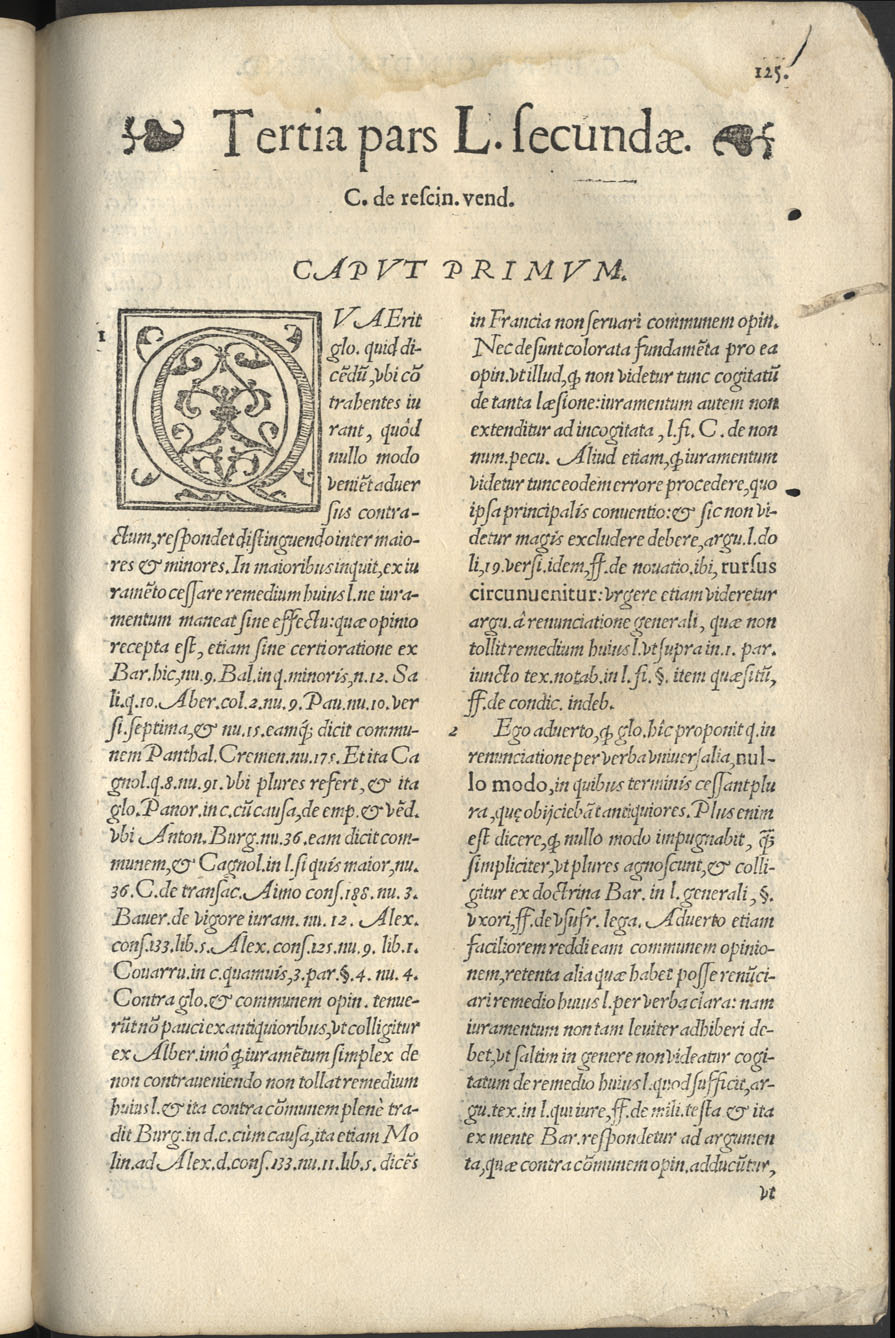 125.
Tertia pars L. ſecundæ.
C. de reſcin. vend.
CAPVT PRIMVM.
1
QVAErit
glo. quid di-
cēdū, vbi cō
trahentes iu
rant, quòd
nullo modo
veniēt aduer
ſus contra-
ctum, reſpondet diſtinguendo inter maio-
res & minores. In maioribus inquit, ex iu
ramēto ceſſare remedium huius l. ne iura-
mentum maneat ſine effectu: quæ opinio
recepta eſt, etiam ſine certioratione ex
Bar. hic, nu. 9. Bal. in q. minoris, n. 12. Sa
li. q. 10. Aber. col. 2. nu. 9. Pau. nu. 10. ver
ſi. ſeptima, & nu. 15. eamq́; dicit commu-
nem Panthal. Cremen. nu. 175. Et ita Ca
gnol. q. 8. nu. 91. vbi plures refert, & ita
glo. Panor. in c. cū cauſa, de emp. & vēd.
vbi Anton. Burg. nu. 36. eam dicit com-
munem, & Cagnol. in l. ſi quis maior, nu.
36. C. de tranſac. Aimo conſ. 188. nu. 3.
Bauer. de vigore iuram. nu. 12. Alex.
conſ. 133. lib. 5. Alex. conſ. 125. nu. 9. lib. 1.
Couarru. in c. quamuis, 3. par. §. 4. nu. 4.
Contra glo. & communem opin. tenue-
rūt nō pauci ex antiquioribus, vt colligitur
ex Alber. imò ꝙ iuramētum ſimplex de
non contraueniendo non tollat remedium
huius l. & ita contra cōmunem plenè tra-
dit Burg. in d. c. cùm cauſa, ita etiam Mo
lin. ad Alex. d. conſ. 133. nu. 11. lib. 5. dicēs
in Francia non ſeruari communem opin.
Nec deſunt colorata fundamēta pro ea
opin. vt illud, ꝙ non videtur tunc cogitatū
de tanta læſione: iuramentum autem non
extenditur ad incogitata, l. fi. C. de non
num. pecu. Aliud etiam, ꝙ iuramentum
videtur tunc eodem errore procedere, quo
ipſa principalis conuentio: & ſic non vi-
detur magis excludere debere, argu. l. do
li, 19. verſi. idem, ff. de nouatio. ibi, rurſus
circunuenitur: vrgere etiam videretur
argu. à renunciatione generali, quæ non
tollit remedium huius l. vt ſupra in. 1. par.
iuncto tex. notab. in l. ſi. §. item quæſitū,
ff. de condic. indeb.
2 Ego aduerto, ꝙ glo. hîc proponit q. in
renunciatione per verba vniuerſalia, nul-
lo modo, in quibus terminis ceſſant plu
ra, quę obijciebāt antiquiores. Plus enim
eſt dicere, ꝙ nullo modo impugnabit, ꝙ̃
ſimpliciter, vt plures agnoſcunt, & colli-
gitur ex doctrina Bar. in l. generali, §.
vxori, ff. de vſufr. lega. Aduerto etiam
faciliorem reddi eam communem opinio-
nem, retenta alia quæ habet poſſe renūci-
ari remedio huius l. per verba clara: nam
iuramentum non tam leuiter adhiberi de-
bet, vt ſaltim in genere non videatur cogi-
tatum de remedio huius l. quod ſufficit, ar-
gu. tex. in l. qui iure, ff. de mili. teſta. & ita
ex mente Bar. reſpondetur ad argumen
ta, quæ contra cōmunem opin. adducūtur,
vt